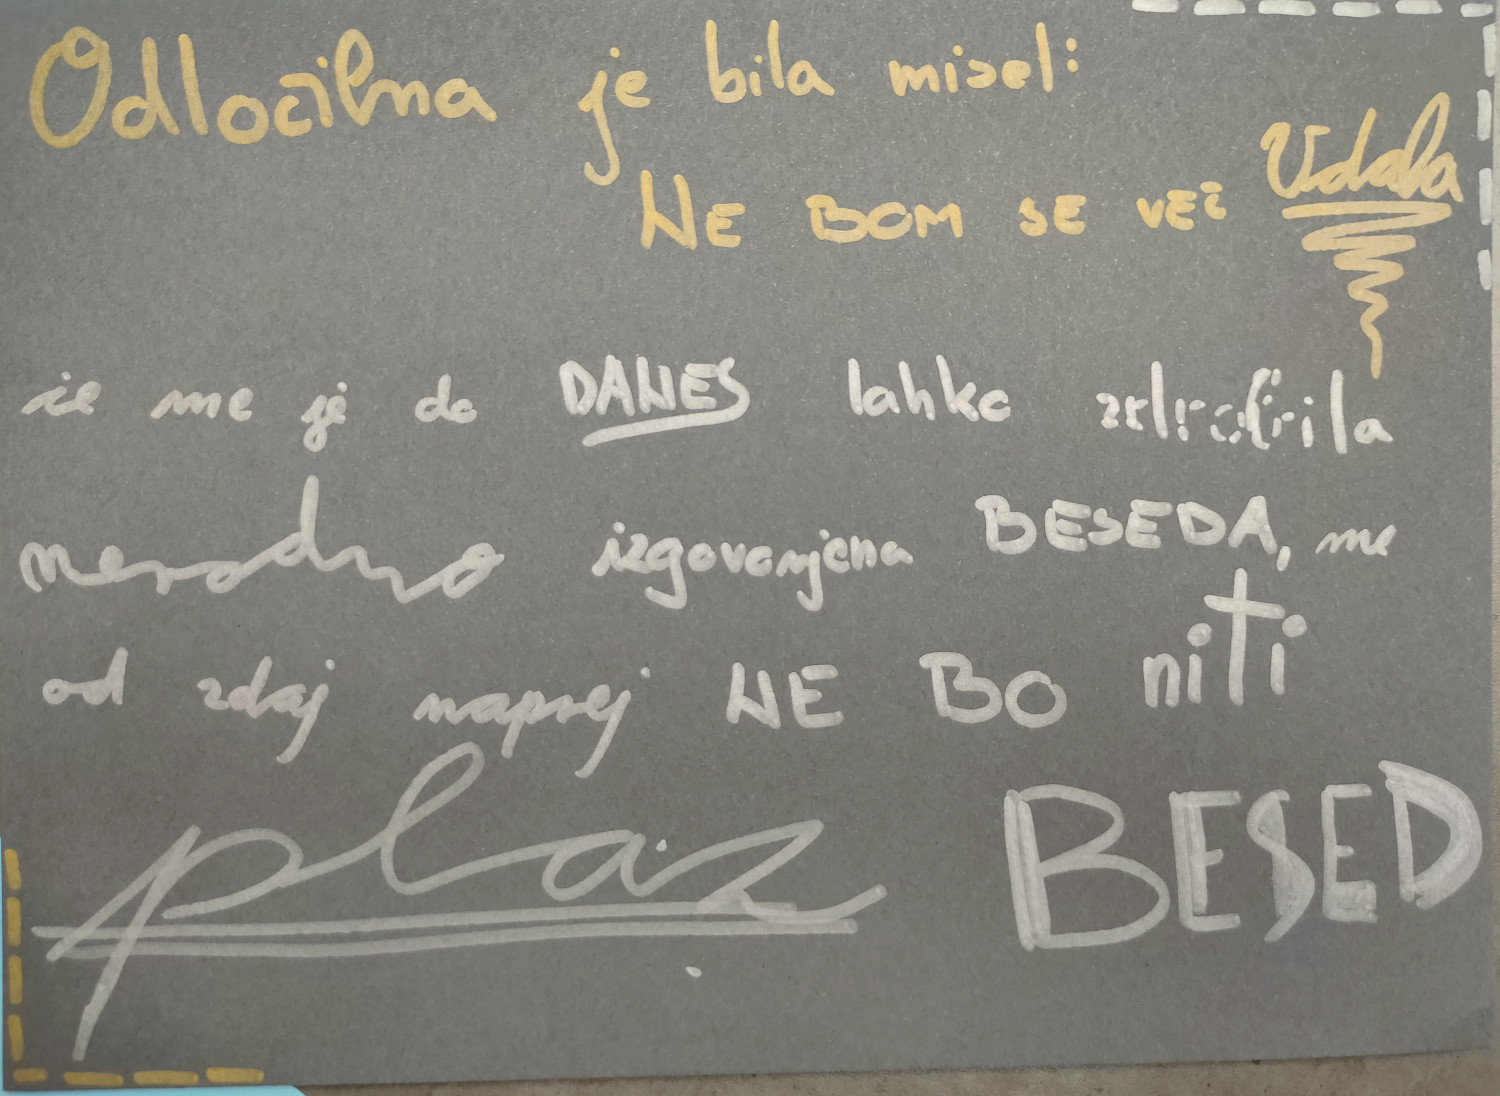 Odločilna je bila misel:
NE BOM SE VEČ Vdala
če me je do DANES lahko zdrobila
nerodno izgovorjena BESEDA, me
od zdaj naprej NE BO niti
plaz BESED